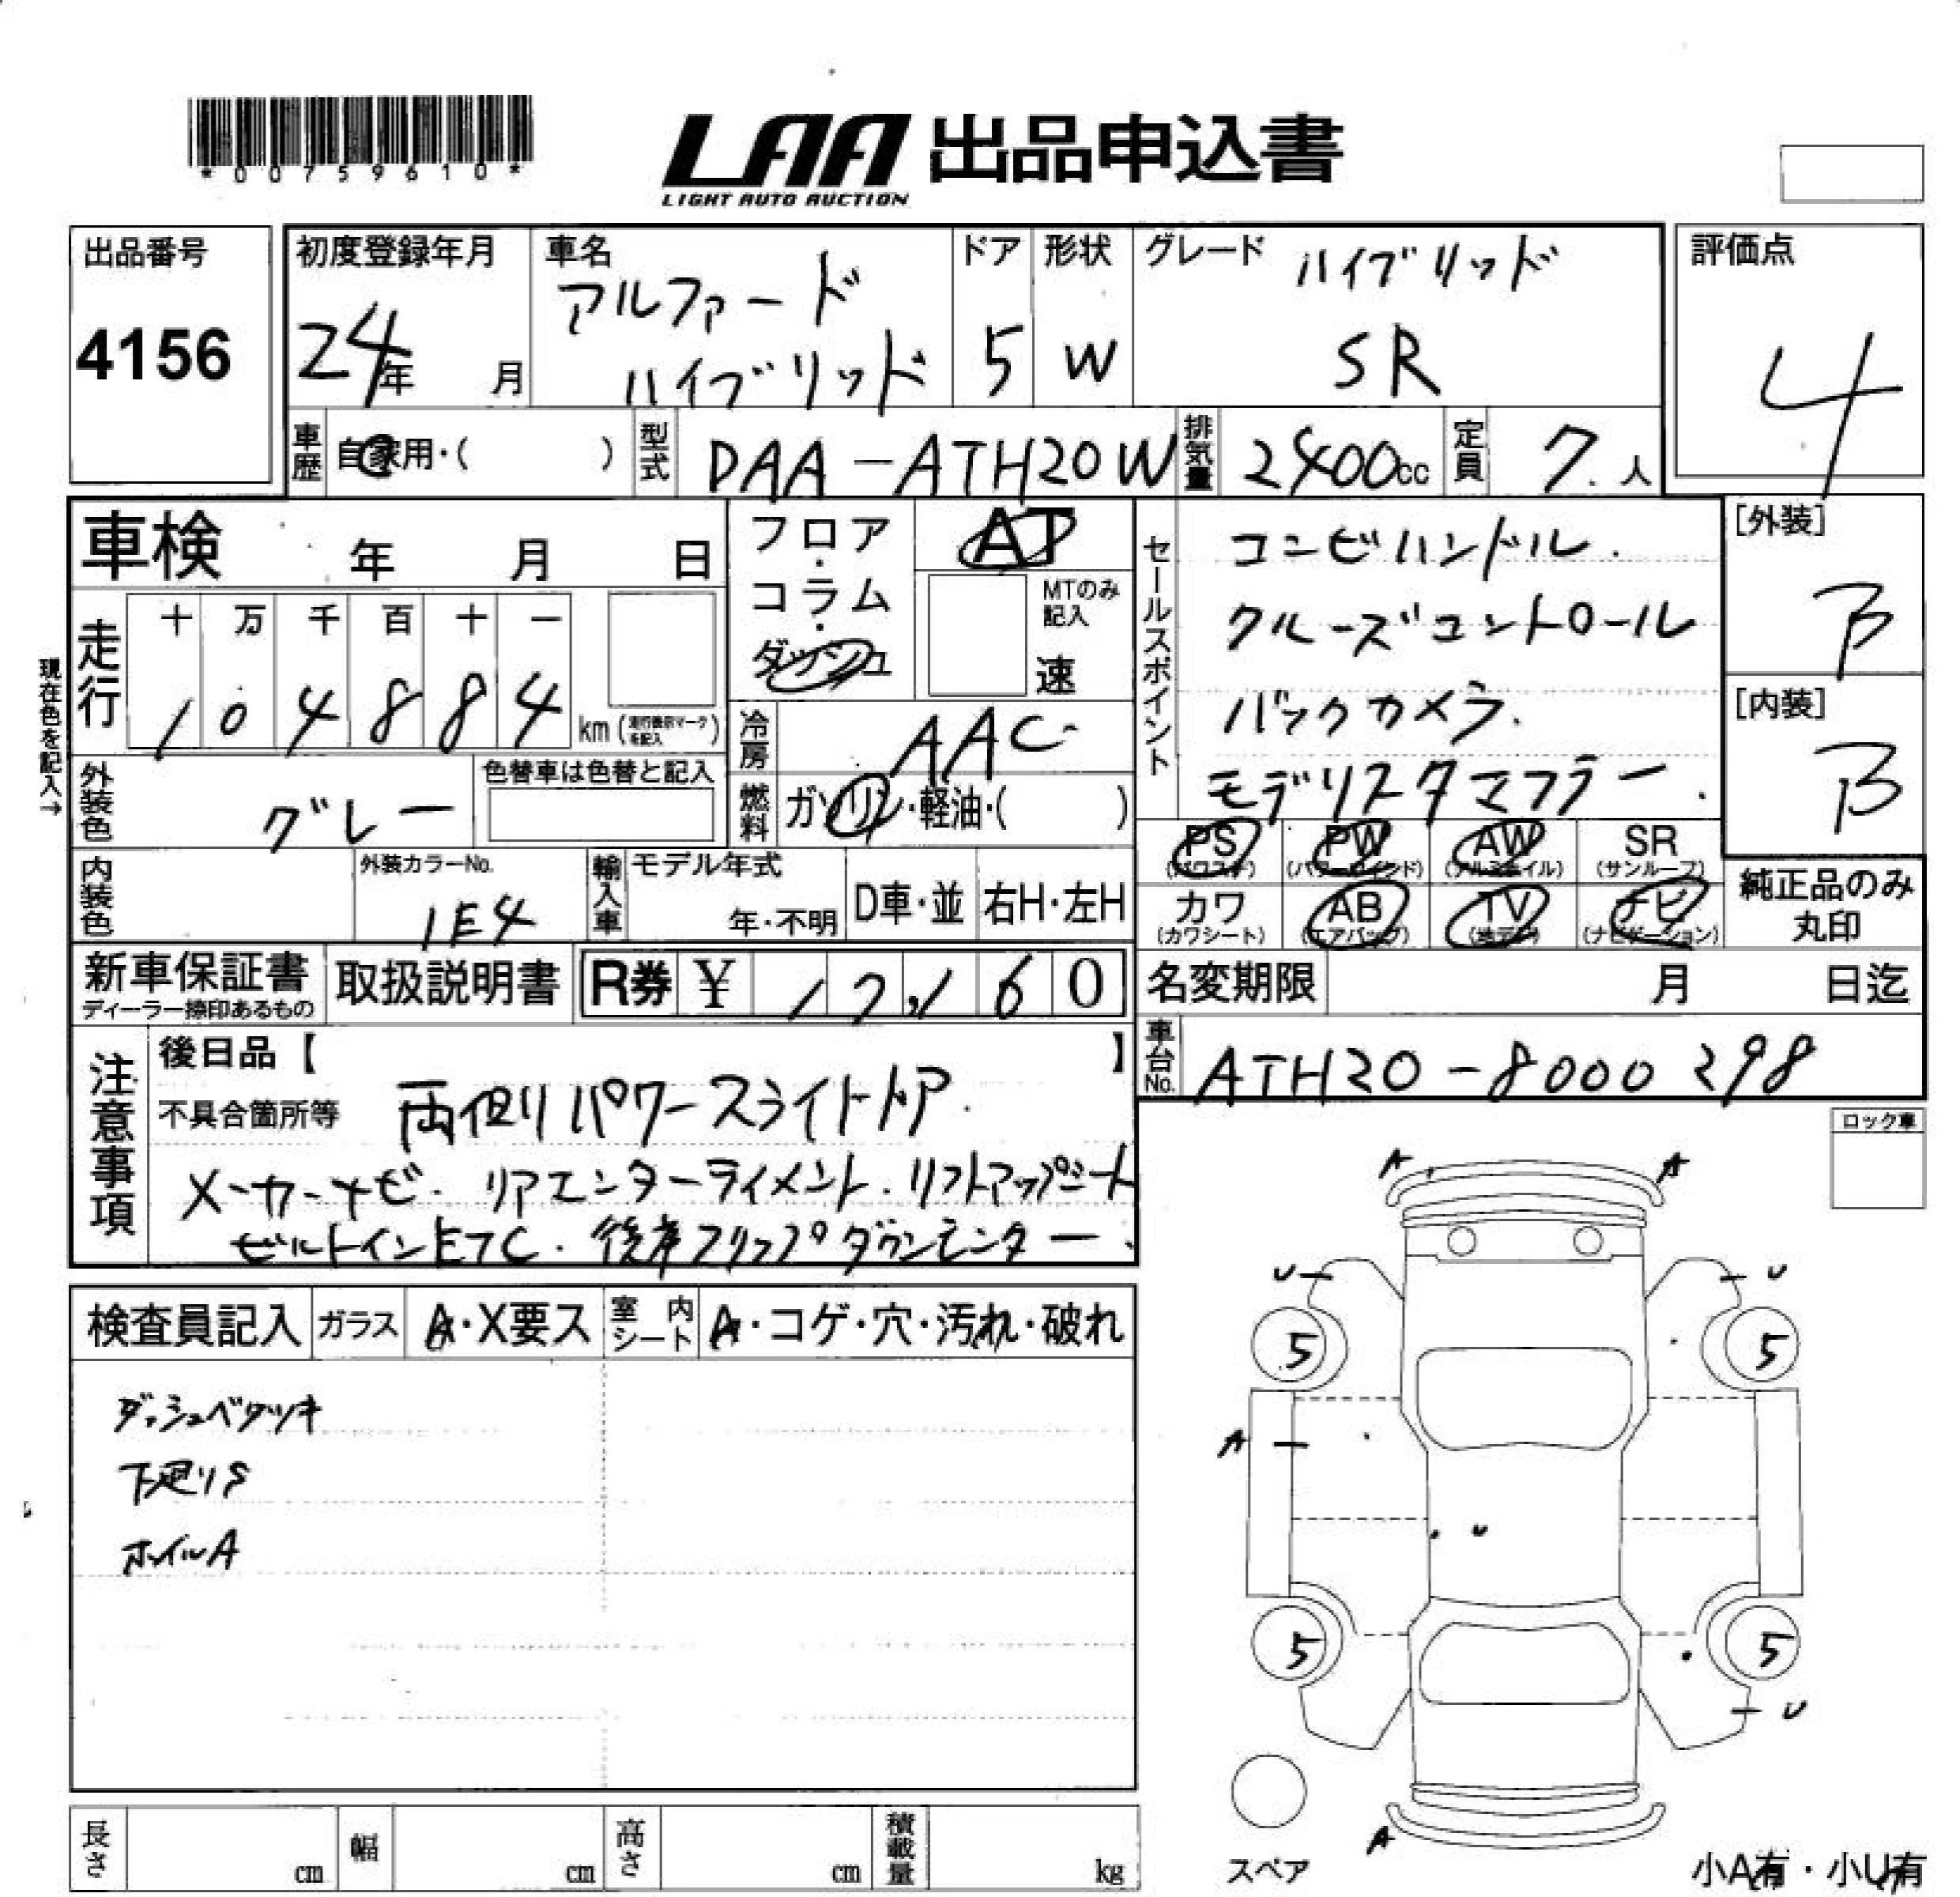 *00759610*
LAA 出品申込書
LIGHT AUTO AUCTION
出品番号
4156
初度登録年月
24年 月
車名
アルファード
ハイブリッド
ドア
5
形状
W
グレード ハイブリッド
SR
評価点
4
車歴 自家用・( )
型式 DAA-ATH20W
排気量 2400cc
定員 7人
車検 年 月 日
フロア・コラム・ダッシュ
AT
MTのみ記入
速
セールスポイント
コンビハンドル.
クルーズコントロール
バックカメラ.
モデリスタマフラー.
[外装]
B
[内装]
B
現在色を記入→
走行
十 万 千 百 十 一
1 0 4 8 8 4
km (走行表示マークを記入)
冷房 AAC
燃料 ガソリン・軽油・( )
外装色 グレー
色替車は色替と記入
PS (パワステ)
PW (パワーウインド)
AW (アルミホイル)
SR (サンルーフ)
カワ (カワシート)
AB (エアバッグ)
TV (地デジ)
ナビ (ナビゲーション)
純正品のみ
丸印
内装色
外装カラーNo.
1E4
輸入車
モデル年式
年・不明
D車・並
右H・左H
新車保証書
ディーラー捺印あるもの
取扱説明書
R券 ¥ 12,160
名変期限 月 日迄
車台No. ATH20-8000298
注意事項
後日品【 】
不具合箇所等 両側パワースライドドア.
メーカーナビ. リアエンターテイメント. リフトアップシート
ビルトインETC. 後席フリップダウンモニター.
ロック車
検査員記入
ガラス A・X要ス
室内シート A・コゲ・穴・汚れ・破れ
ダッシュベタツキ
下廻りS
ホイルA
A A
U U
5 5
A
U
5 5
U
A
スペア
小A有・小U有
長さ cm
幅 cm
高さ cm
積載量 kg